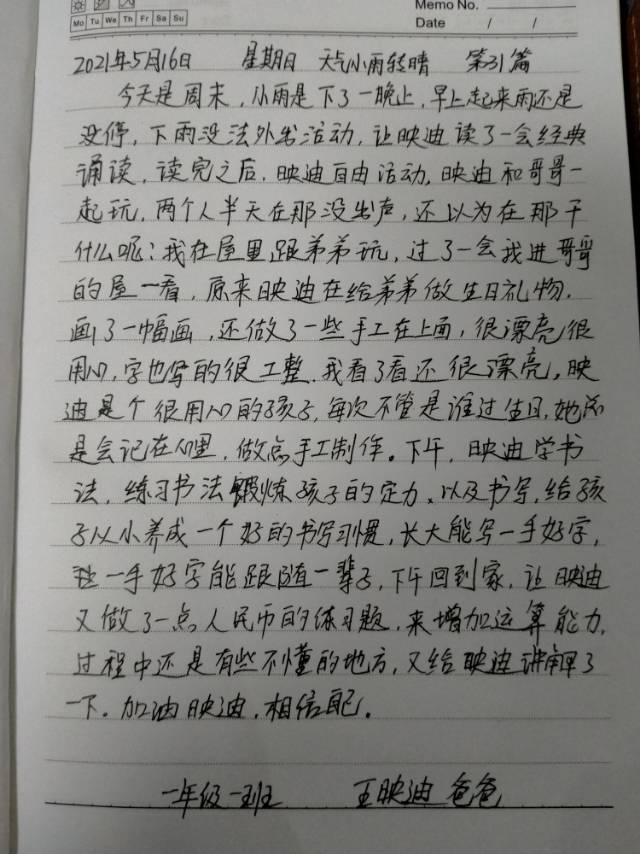 Memo No.
Mo Tu We Th Fr Sa Su
Date / /
2021年5月16日 星期日 天气小雨转晴 第31篇
今天是周末，小雨是下了一晚上，早上起来雨还是
没停，下雨没法外出活动，让映迪读了一会经典
诵读，读完之后，映迪自由活动，映迪和哥哥一
起玩，两个人半天在那没出声，还以为在那干
什么呢；我在屋里跟弟弟玩，过了一会我进哥哥
的屋一看，原来映迪在给弟弟做生日礼物，
画了一幅画，还做了一些手工在上面，很漂亮很
用心，字也写的很工整，我看了看还很漂亮，映
迪是个很用心的孩子，每次不管是谁过生日，她总
是会记在心里，做点手工制作。下午，映迪学书
法，练习书法锻炼孩子的定力、以及书写，给孩
子从小养成一个好的书写习惯，长大能写一手好字，
一手好字能跟随一辈子，下午回到家，让映迪
又做了一点人民币的练习题，来增加运算能力，
过程中还是有些不懂的地方，又给映迪讲解了
一下。加油映迪，相信自己。
一年级一班 王映迪 爸爸